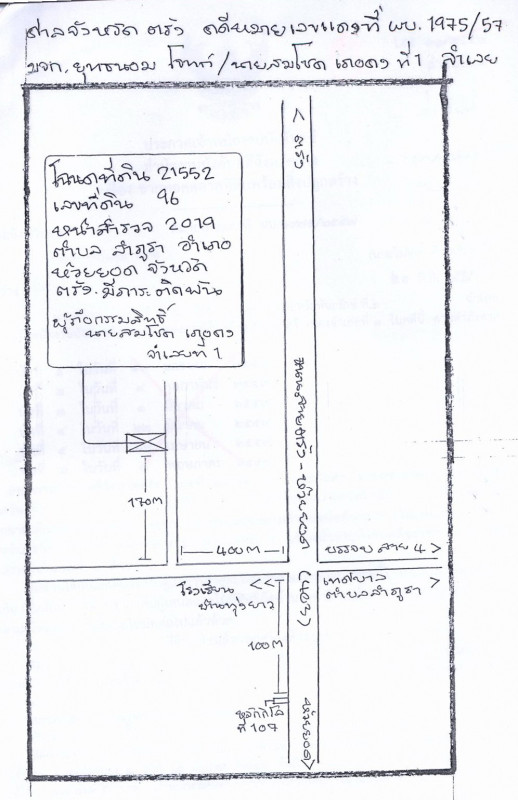 ศาลจังหวัด ตรัง คดีหมายเลขแดงที่ ผบ. 1975/57
บจก. โจทก์ / นายสมโชค ที่ 1 จำเลย
< ตรัง
โฉนดที่ดิน 21552
เลขที่ดิน 96
หน้าสำรวจ 2019
ตำบล ลำภูรา อำเภอ
ห้วยยอด จังหวัด
ตรัง. มีภาระติดพัน
ผู้ถือกรรมสิทธิ์
นายสมโชค
จำเลยที่ 1
ถนนสายตรัง - ห้วยยอด
170m
400m
บรรจบ สาย 4 >
(403)
โรงเรียน <<
บ้านทุ่งยาว
เทศบาล >
ตำบลลำภูรา
100m
หลักกิโล
ที่ 107
ห้วยยอด >